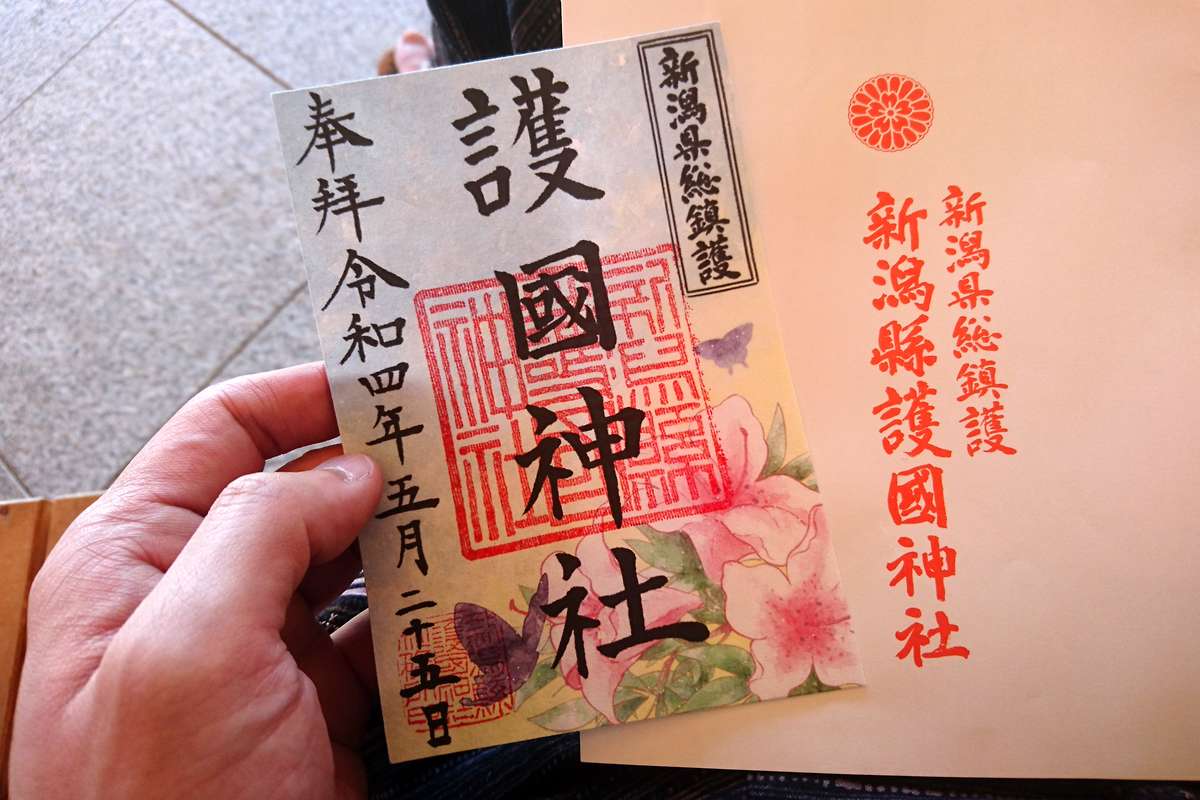 新潟県総鎮護
護國神社
奉拝令和四年五月二十五日
新潟県総鎮護
新潟縣護國神社